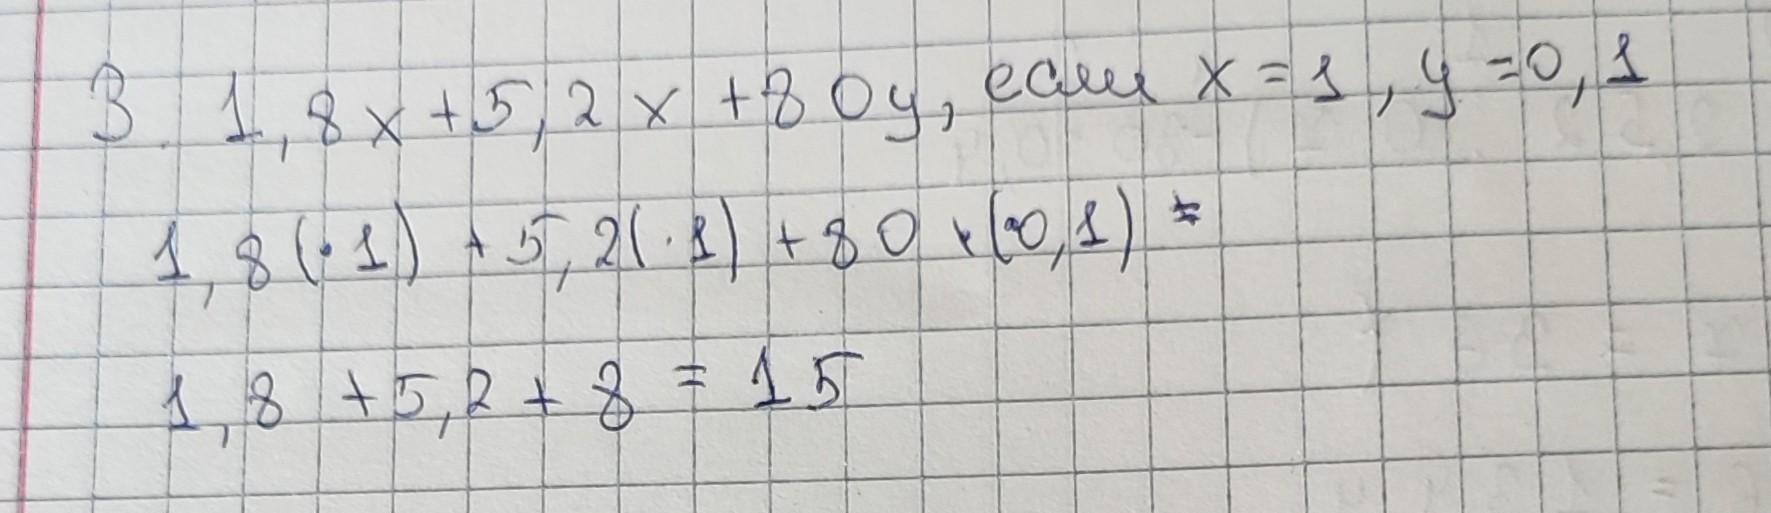 3. 1,8x+5,2x+80y, если x=1, y=0,1
1,8(·1)+5,2(·1)+80·(0,1)=
1,8+5,2+8=15